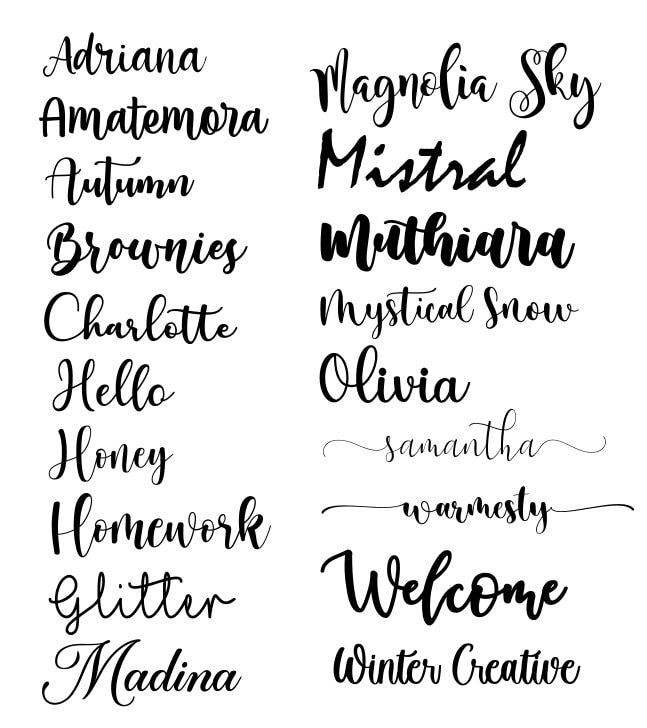 Adriana
Amatemora
Autumn
Brownies
Charlotte
Hello
Honey
Homework
Glitter
Madina
Magnolia Sky
Mistral
Muthiara
Mystical Snow
Olivia
samantha
warmesty
Welcome
Winter Creative